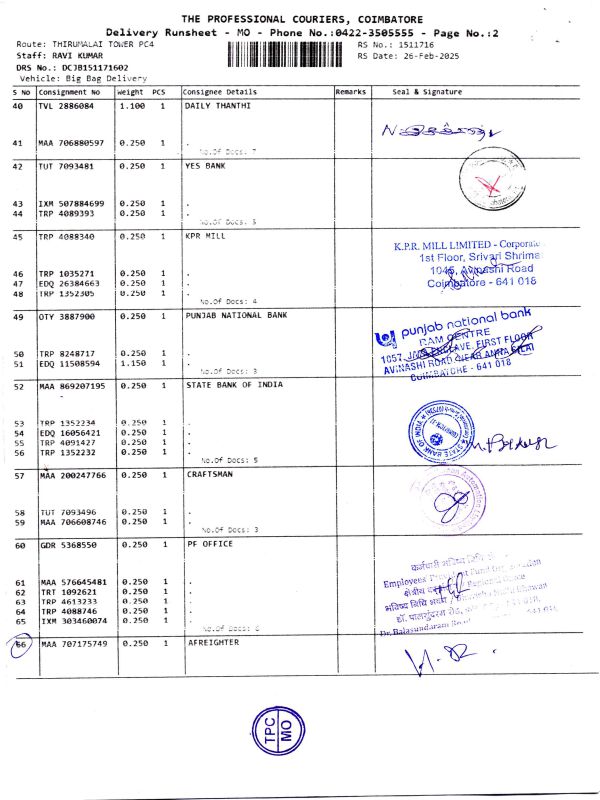 THE PROFESSIONAL COURIERS, COIMBATORE
Delivery Runsheet - MO - Phone No.:0422-3505555 - Page No.:2
Route: THIRUMALAI TOWER PC4
RS No.: 1511716
Staff: RAVI KUMAR
RS Date: 26-Feb-2025
DRS No.: DCJB151171602
Vehicle: Big Bag Delivery
S No Consignment No Weight PCS Consignee Details Remarks Seal & Signature
40 TVL 2886084 1.100 1 DAILY THANTHI
41 MAA 706880597 0.250 1 .
No.Of Docs: 7
42 TUT 7093481 0.250 1 YES BANK
43 IXM 507884699 0.250 1 .
44 TRP 4089393 0.250 1 .
No.Of Docs: 5
45 TRP 4088340 0.250 1 KPR MILL
K.P.R. MILL LIMITED - Corporate
1st Floor, Srivari Shrima
1045, Avinashi Road
Coimbatore - 641 018
46 TRP 1035271 0.250 1 .
47 EDQ 26384663 0.250 1 .
48 TRP 1352305 0.250 1 .
No.Of Docs: 4
49 OTY 3887900 0.250 1 PUNJAB NATIONAL BANK
punjab national bank
RAM CENTRE
1057, JMS ENCLAVE, FIRST FLOOR
AVINASHI ROAD NEAR ANNA SILAI
COIMBATORE - 641 018
50 TRP 8248717 0.250 1 .
51 EDQ 11508594 1.150 1 .
No.Of Docs: 3
52 MAA 869207195 0.250 1 STATE BANK OF INDIA
STATE BANK OF INDIA
53 TRP 1352234 0.250 1 .
54 EDQ 16056421 0.250 1 .
55 TRP 4091427 0.250 1 .
56 TRP 1352232 0.250 1 .
No.Of Docs: 5
57 MAA 200247766 0.250 1 CRAFTSMAN
58 TUT 7093496 0.250 1 .
59 MAA 706608746 0.250 1 .
No.Of Docs: 3
60 GDR 5368550 0.250 1 PF OFFICE
कर्मचारी भविष्य निधि
Employees' Provident Fund
क्षेत्रीय
Regional Office
भविष्य निधि भवन
Bhawan
डॉ. बालसुंदरम रोड,
641 018
Dr. Balasundaram Road
61 MAA 576645481 0.250 1 .
62 TRT 1092621 0.250 1 .
63 TRP 4613233 0.250 1 .
64 TRP 4088746 0.250 1 .
65 IXM 303460074 0.250 1 .
No.Of Docs: 6
66 MAA 707175749 0.250 1 AFREIGHTER
TPC
MO